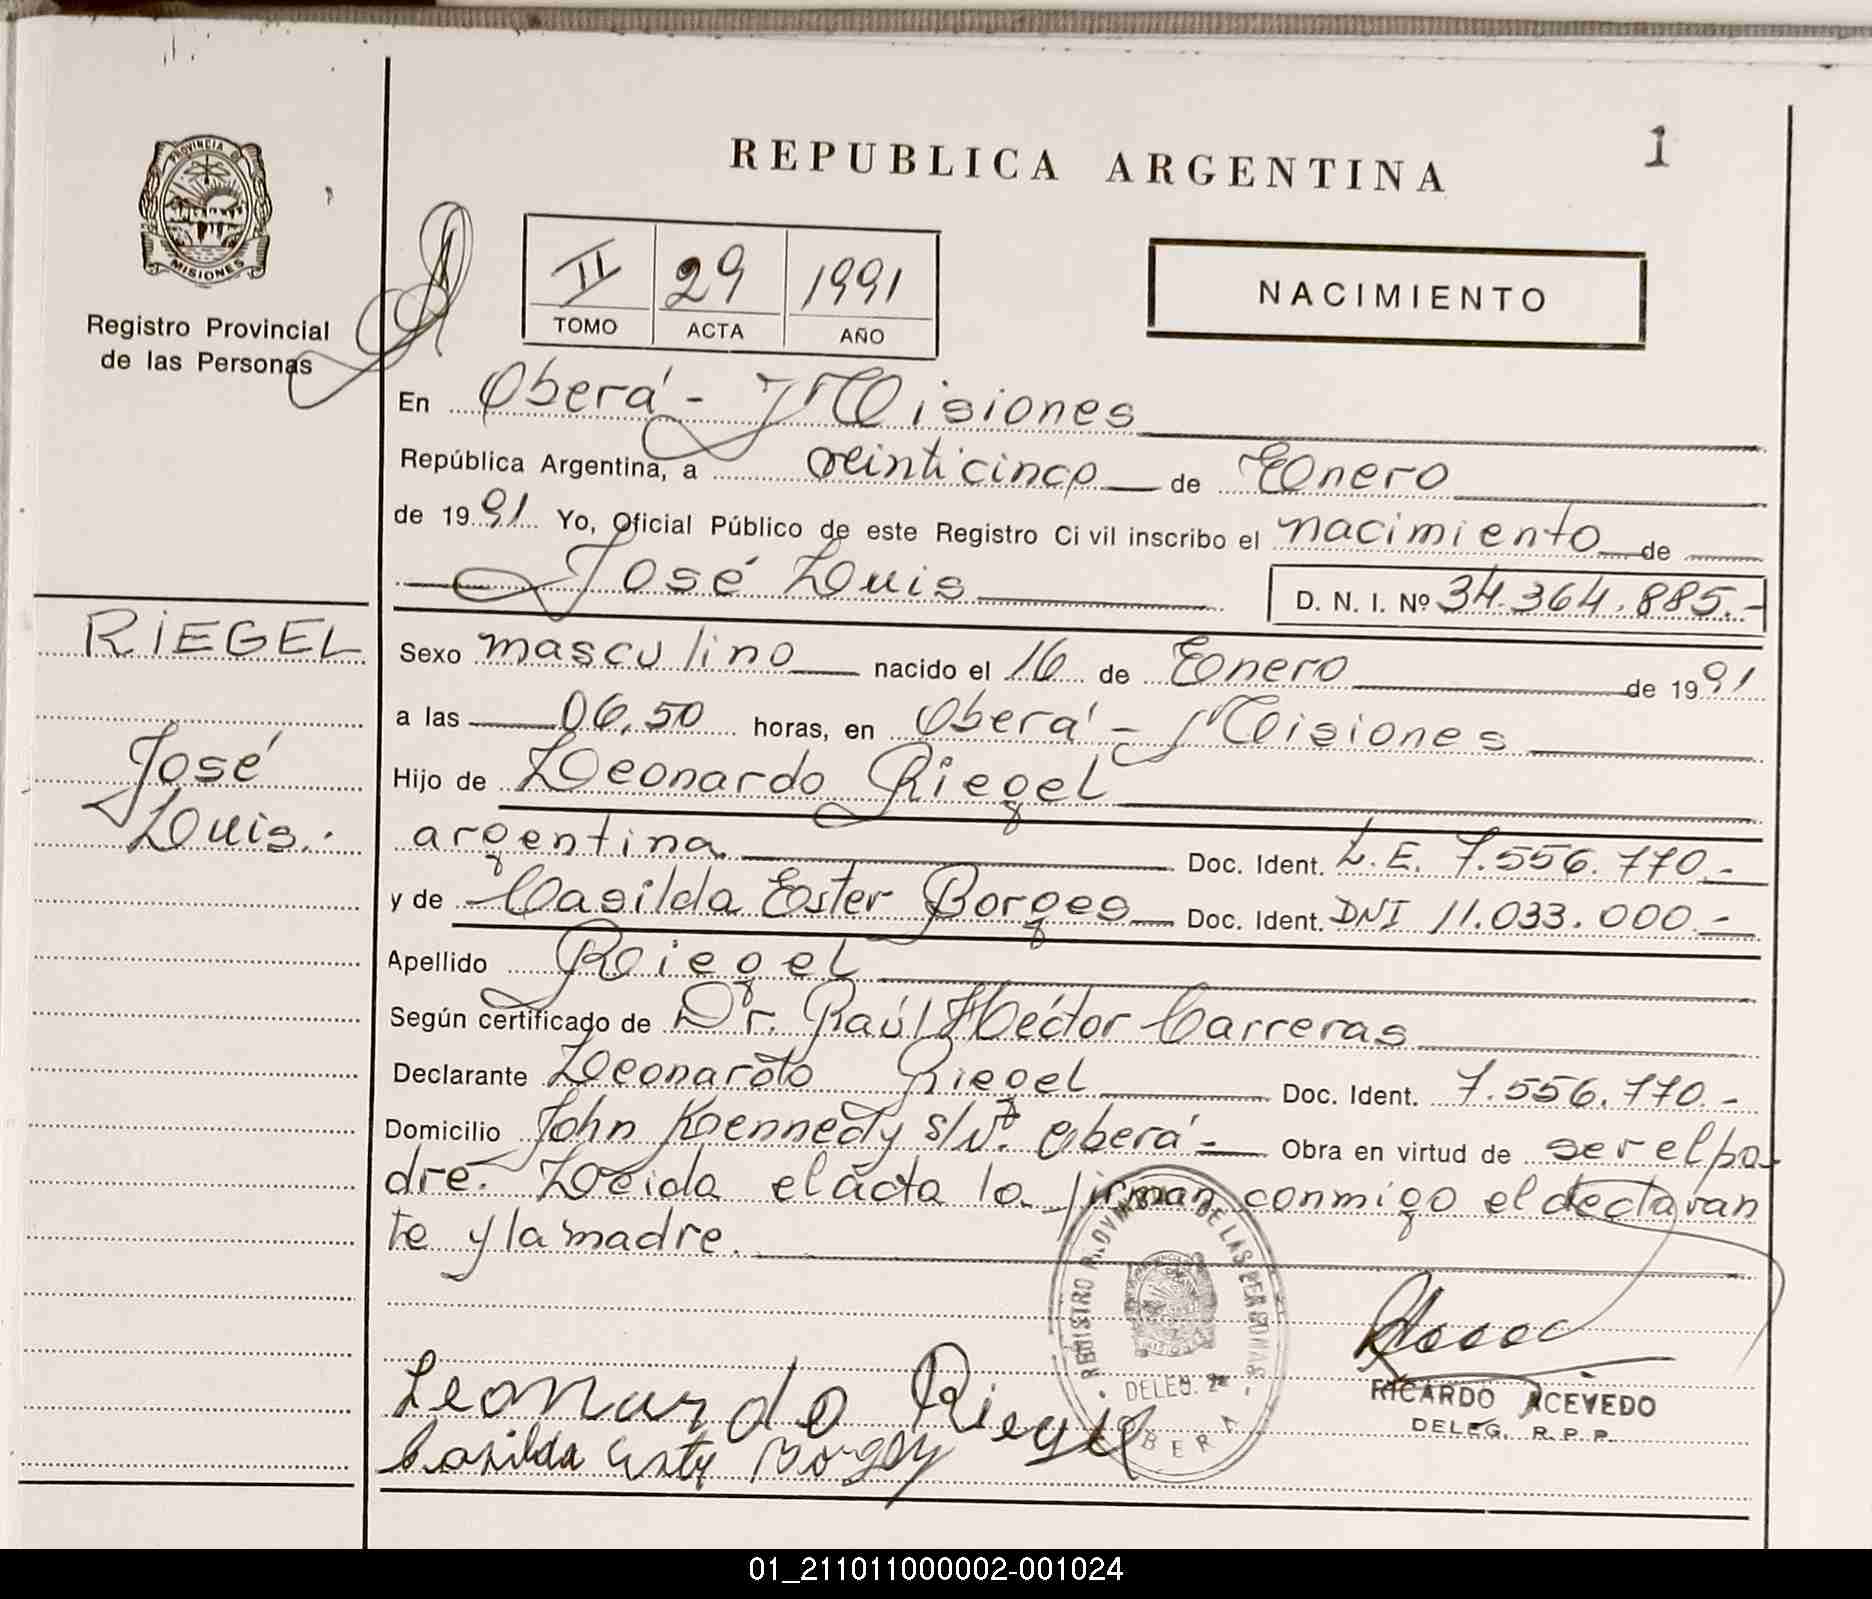 REPUBLICA ARGENTINA
1
PROVINCIA DE
MISIONES
Registro Provincial
de las Personas
II 29 1991
TOMO ACTA AÑO
NACIMIENTO
En Oberá - Misiones
República Argentina, a veinticinco de Enero
de 1991 Yo, Oficial Público de este Registro Civil inscribo el nacimiento de
José Luis D. N. I. Nº 34.364.885.-
RIEGEL
José
Luis.
Sexo masculino nacido el 16 de Enero de 1991
a las 06,50 horas, en Oberá - Misiones
Hijo de Leonardo Riegel
argentina Doc. Ident. L.E. 7.556.770.-
y de Casilda Ester Borges Doc. Ident. DNI 11.033.000.-
Apellido Riegel
Según certificado de Dr. Raúl Héctor Carreras
Declarante Leonardo Riegel Doc. Ident. 7.556.770.-
Domicilio John Kennedy s/Nº. Oberá - Obra en virtud de ser el pa-
dre. Leida el acta la firman conmigo el declaran
te y la madre.
REGISTRO PROVINCIAL DE LAS PERSONAS
DELEG. 2ª
OBERA
Leonardo Riegel
Casilda Ester Borges
RICARDO ACEVEDO
DELEG. R. P. P.
01_211011000002-001024